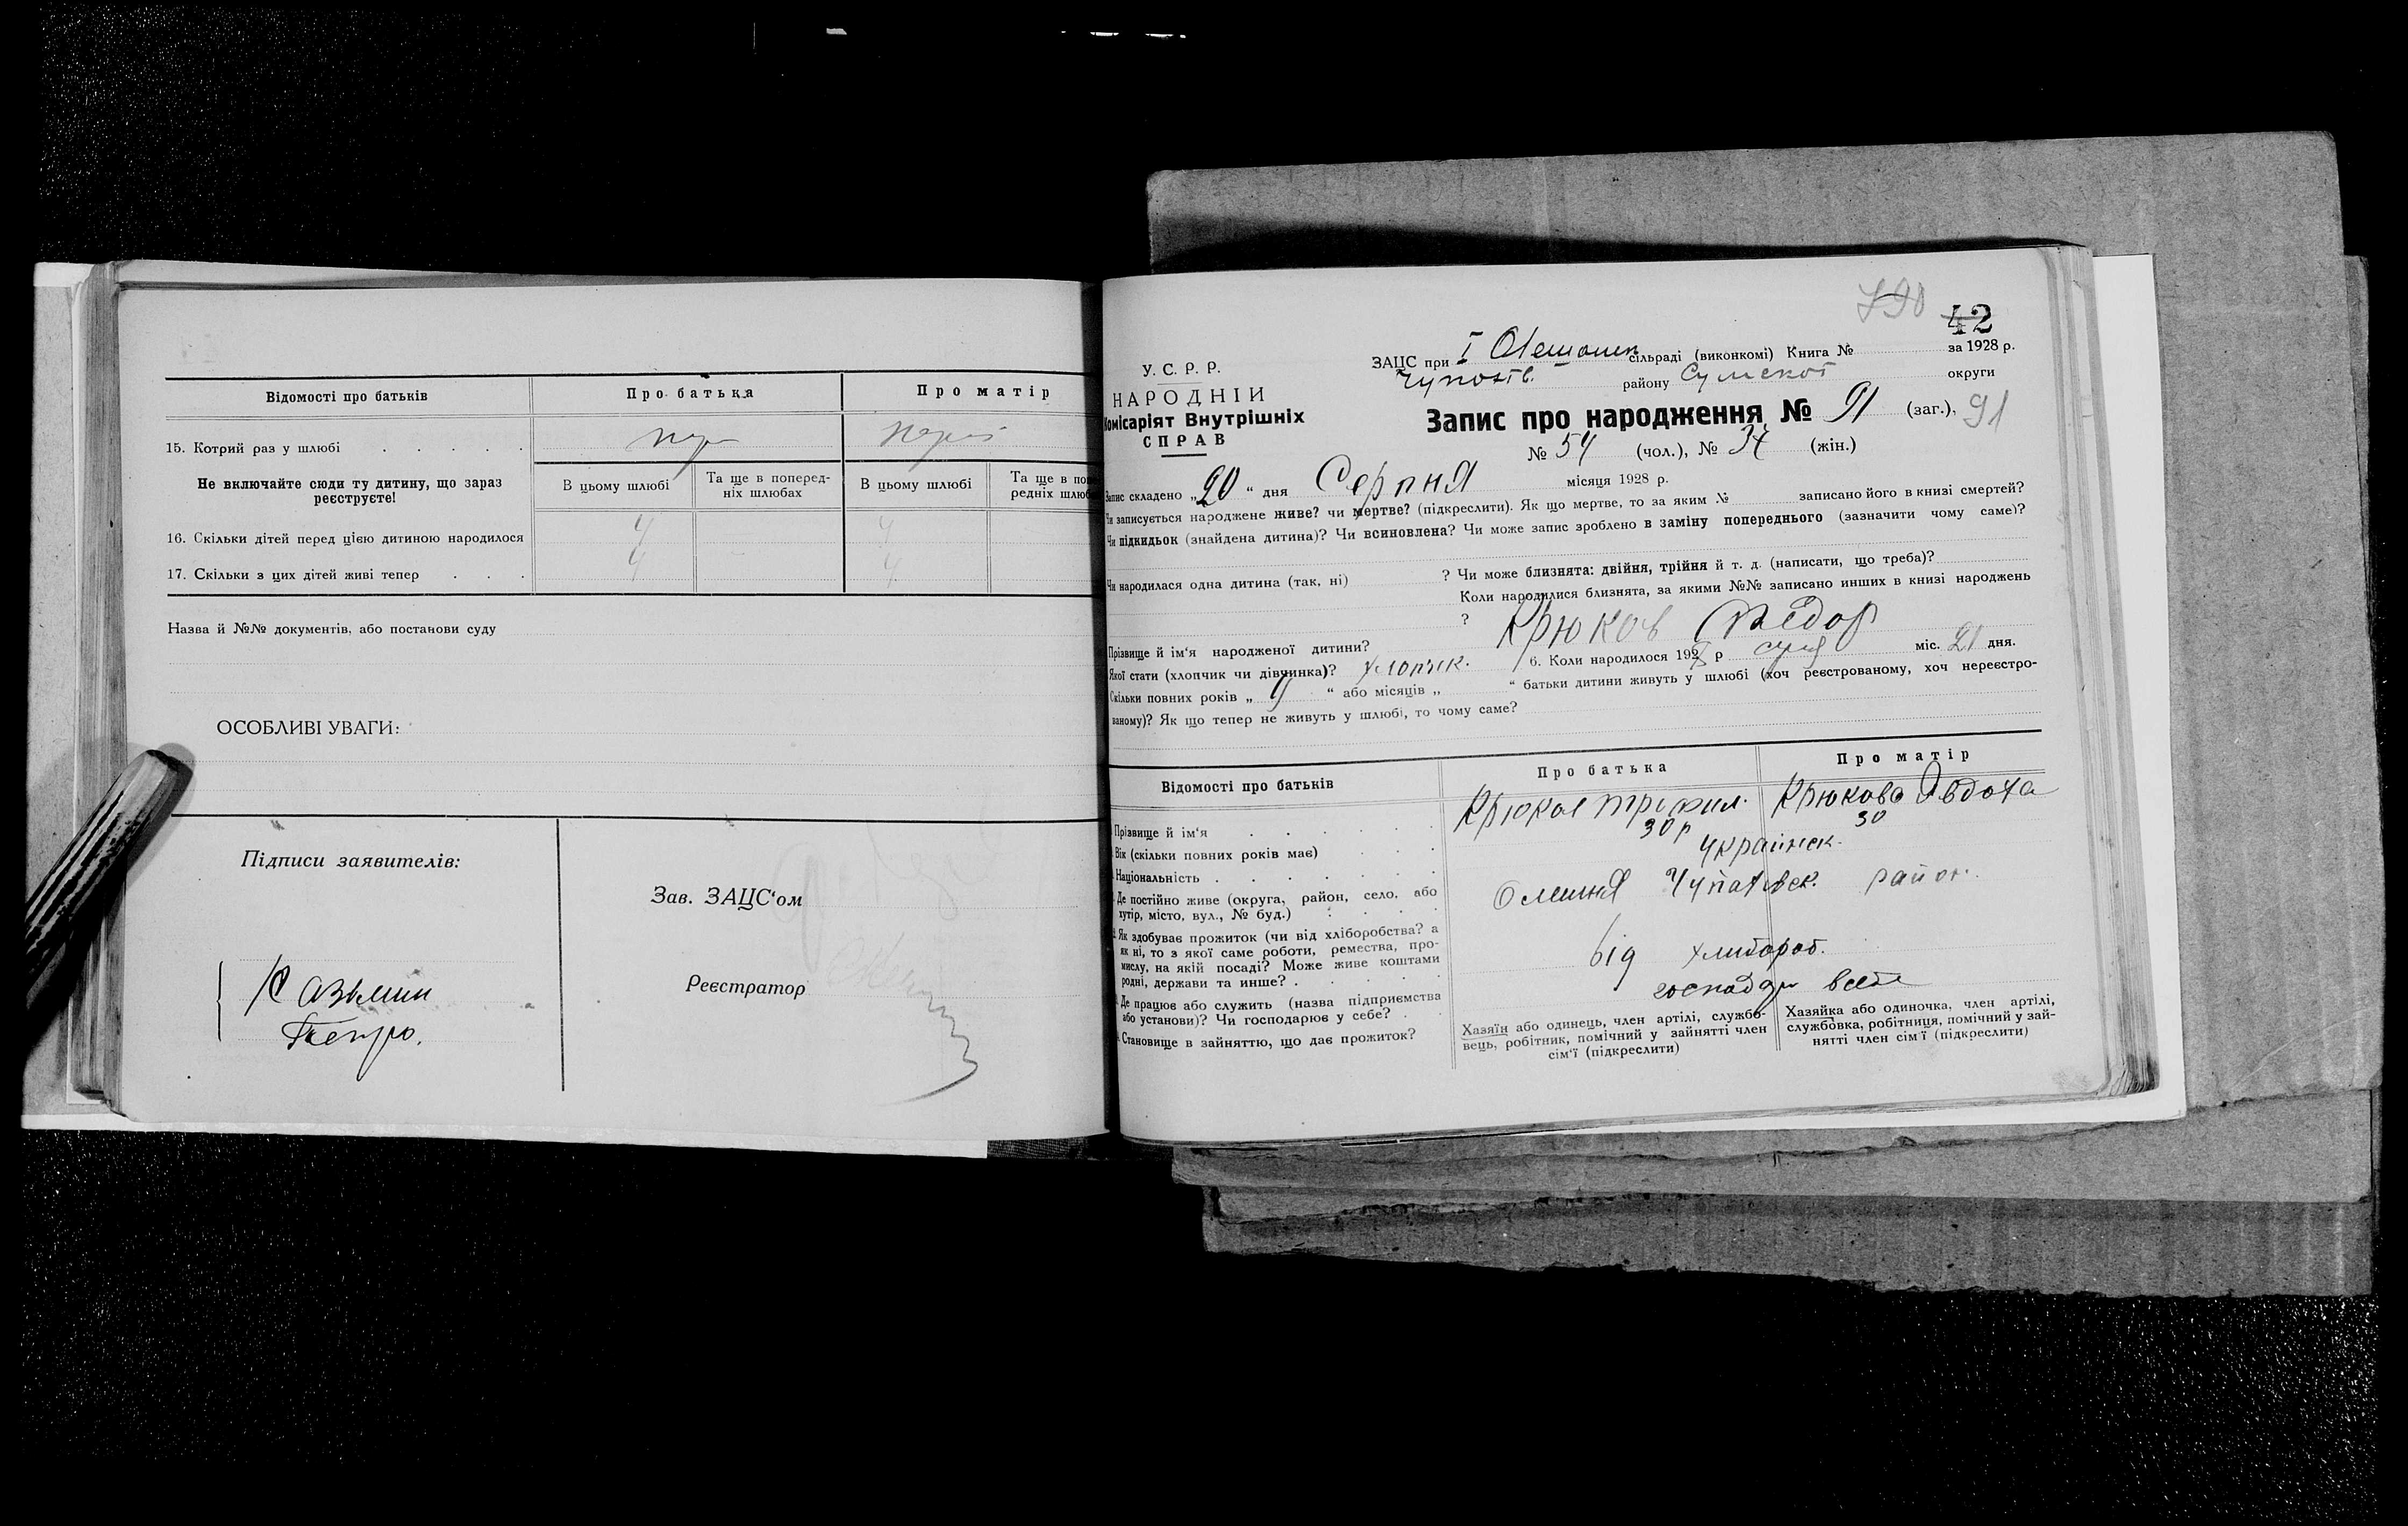 Відомості про батьків
Про батька
Про матір
15. Котрий раз у шлюбі
Не включайте сюди ту дитину, що зараз реєструєте!
В цьому шлюбі
Та ще в попередніх шлюбах
В цьому шлюбі
16. Скільки дітей перед цією дитиною народилося 4 4
17. Скільки з цих дітей живі тепер 4 4
Назва й №№ документів, або постанови суду
ОСОБЛИВІ УВАГИ:
Підписи заявителів:
Зав. ЗАЦС'ом
Реєстратор
Петро.
42
У. С. Р. Р.
НАРОДНІЙ
Комісаріят Внутрішніх
СПРАВ
ЗАЦС при І сільраді (виконкомі) Книга № за 1928 р.
району Сумской округи
Запис про народження № 91 (заг.), 91
№ 54 (чол.), № 34 (жін.)
Запис складено „20“ дня Серпня місяця 1928 р.
Чи записується народжене живе? чи мертве? (підкреслити). Як що мертве, то за яким № записано його в книзі смертей?
Чи підкидьок (знайдена дитина)? Чи всиновлена? Чи може запис зроблено в заміну попереднього (зазначити чому саме)?
Чи народилася одна дитина (так, ні) ? Чи може близнята: двійня, трійня й т. д. (написати, що треба)?
Коли народилися близнята, за якими №№ записано инших в книзі народжень
?
Прізвище й ім'я народженої дитини? Крюков Федор
Якої стати (хлопчик чи дівчинка)? хлопчик. 6. Коли народилося 1928 р міс. 21 дня.
Скільки повних років „9“ або місяців „ “ батьки дитини живуть у шлюбі (хоч реєстрованому, хоч нереєстро-
ваному)? Як що тепер не живуть у шлюбі, то чому саме?
Відомості про батьків
Про батька
Про матір
Прізвище й ім'я
Крюков
Крюкова Явдоха
Вік (скільки повних років має) 30 р 30
Національність Украинск.
Де постійно живе (округа, район, село, або
хутір, місто, вул., № буд.)
район.
Як здобуває прожиток (чи від хліборобства? а
як ні, то з якої саме роботи, ремества, про-
мислу, на якій посаді? Може живе коштами
родні, держави та инше?
від хлибороб.
Де працює або служить (назва підприємства
або установи)? Чи господарює у себе?
Становище в зайняттю, що дає прожиток?
Хазяїн або одинець, член артілі, службо-
вець, робітник, помічний у зайнятті член
сім'ї (підкреслити)
Хазяйка або одиночка, член артілі,
службовка, робітниця, помічний у зай-
нятті член сім'ї (підкреслити)